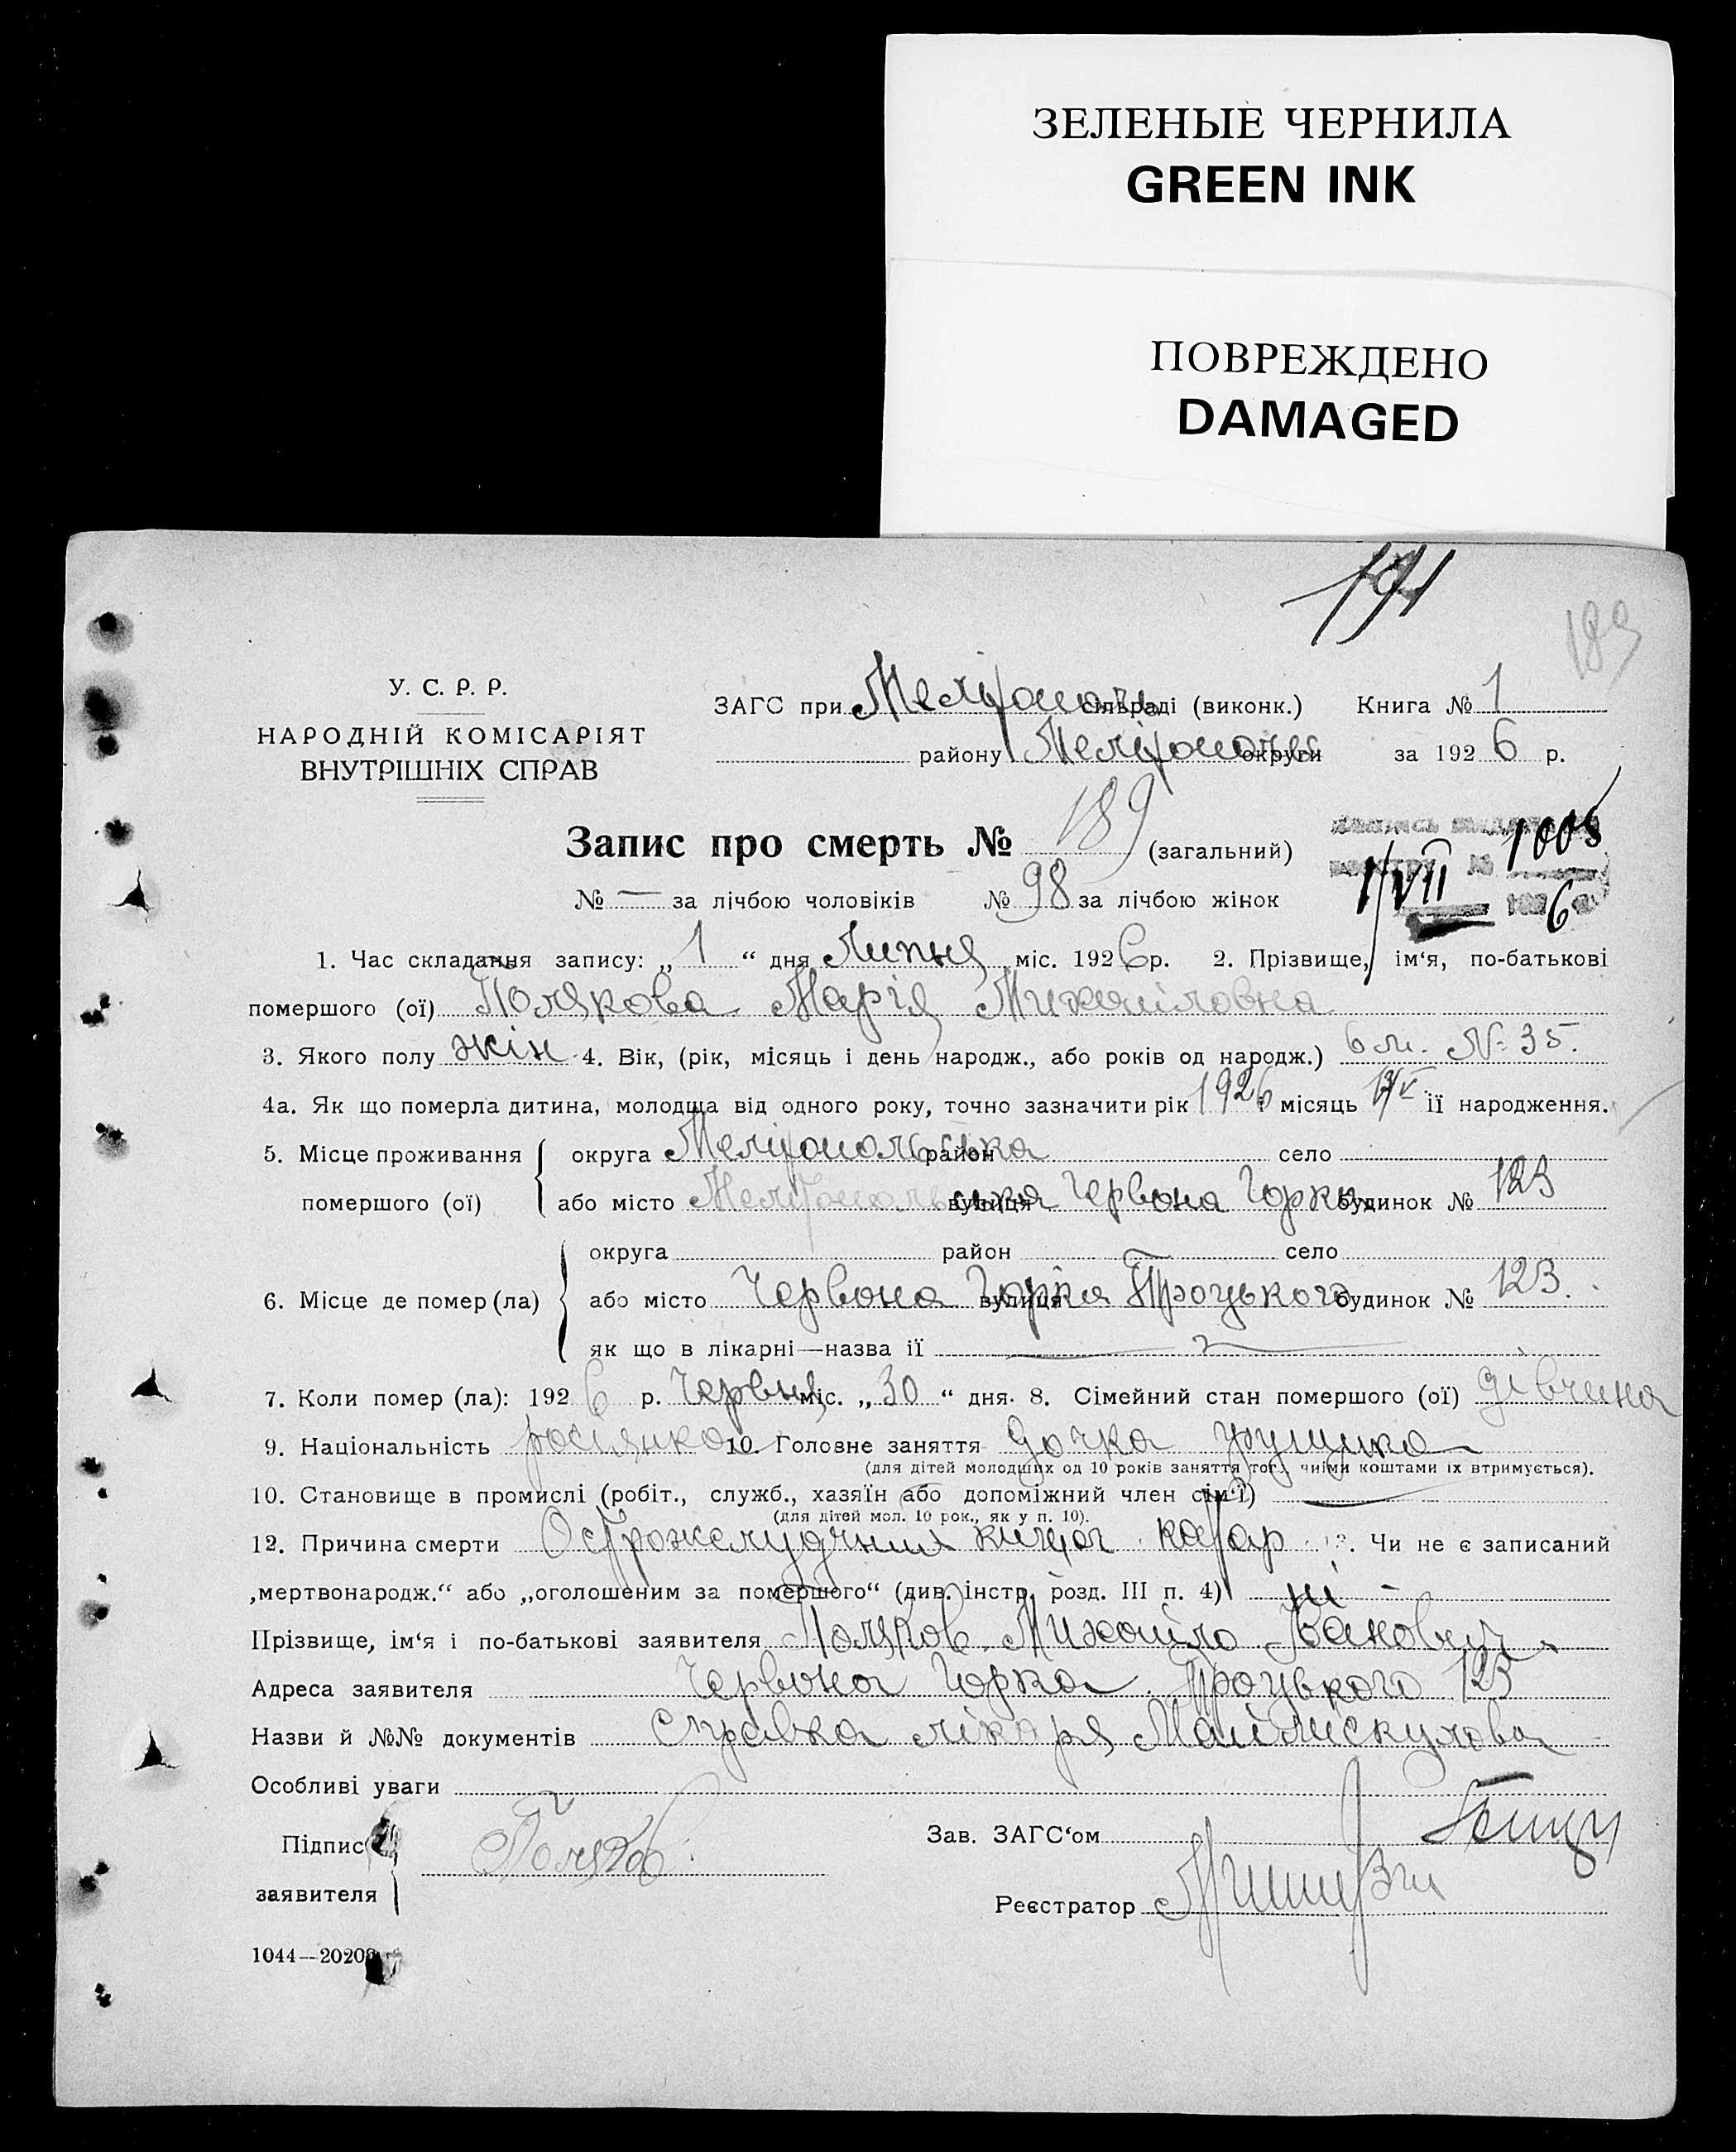 ЗЕЛЕНЫЕ ЧЕРНИЛА
GREEN INK
ПОВРЕЖДЕНО
DAMAGED
191
189
У. С. Р. Р.
НАРОДНІЙ КОМІСАРІЯТ
ВНУТРІШНІХ СПРАВ
ЗАГС при сільраді (виконк.) Книга № 1
району округи за 1926 р.
Запис про смерть № 189 (загальний)
1005
№ — за лічбою чоловіків № 98 за лічбою жінок
1/VII 1926
1. Час складання запису: „1“ дня Липня міс. 1926 р. 2. Прізвище, ім‘я, по-батькові
помершого (ої) Полякова Марія Михаиловна
3. Якого полу жін 4. Вік, (рік, місяць і день народж., або років од народж.) 6 м. № 35.
4а. Як що померла дитина, молодща від одного року, точно зазначити рік 1926 місяць її народження.
5. Місце проживання помершого (ої) округа Мелітопольська район село
або місто Мелітопольська вулиця Червона Горка будинок № 123
6. Місце де помер (ла) округа район село
або місто Червона Горка вулиця Троцького будинок № 123.
як що в лікарні—назва її —
7. Коли помер (ла): 1926 р. Червня міс. „30“ дня. 8. Сімейний стан помершого (ої) дівчина
9. Національність росіянка 10. Головне заняття дочка
(для дітей молодших од 10 років заняття того, чиїми коштами їх втримується).
10. Становище в промислі (робіт., служб., хазяїн або допоміжний член сім‘ї) —
(для дітей мол. 10 рок., як у п. 10).
12. Причина смерти катар 13. Чи не є записаний
„мертвонародж.“ або „оголошеним за помершого“ (див. інстр. розд. III п. 4) ні -
Прізвище, ім‘я і по-батькові заявителя Поляков Михаіло Іванович
Адреса заявителя Червона Горка Троцького 123
Назви й №№ документів Справка лікаря
Особливі уваги
Підпис заявителя Поляков
Зав. ЗАГС‘ом
Реєстратор
1044—2020